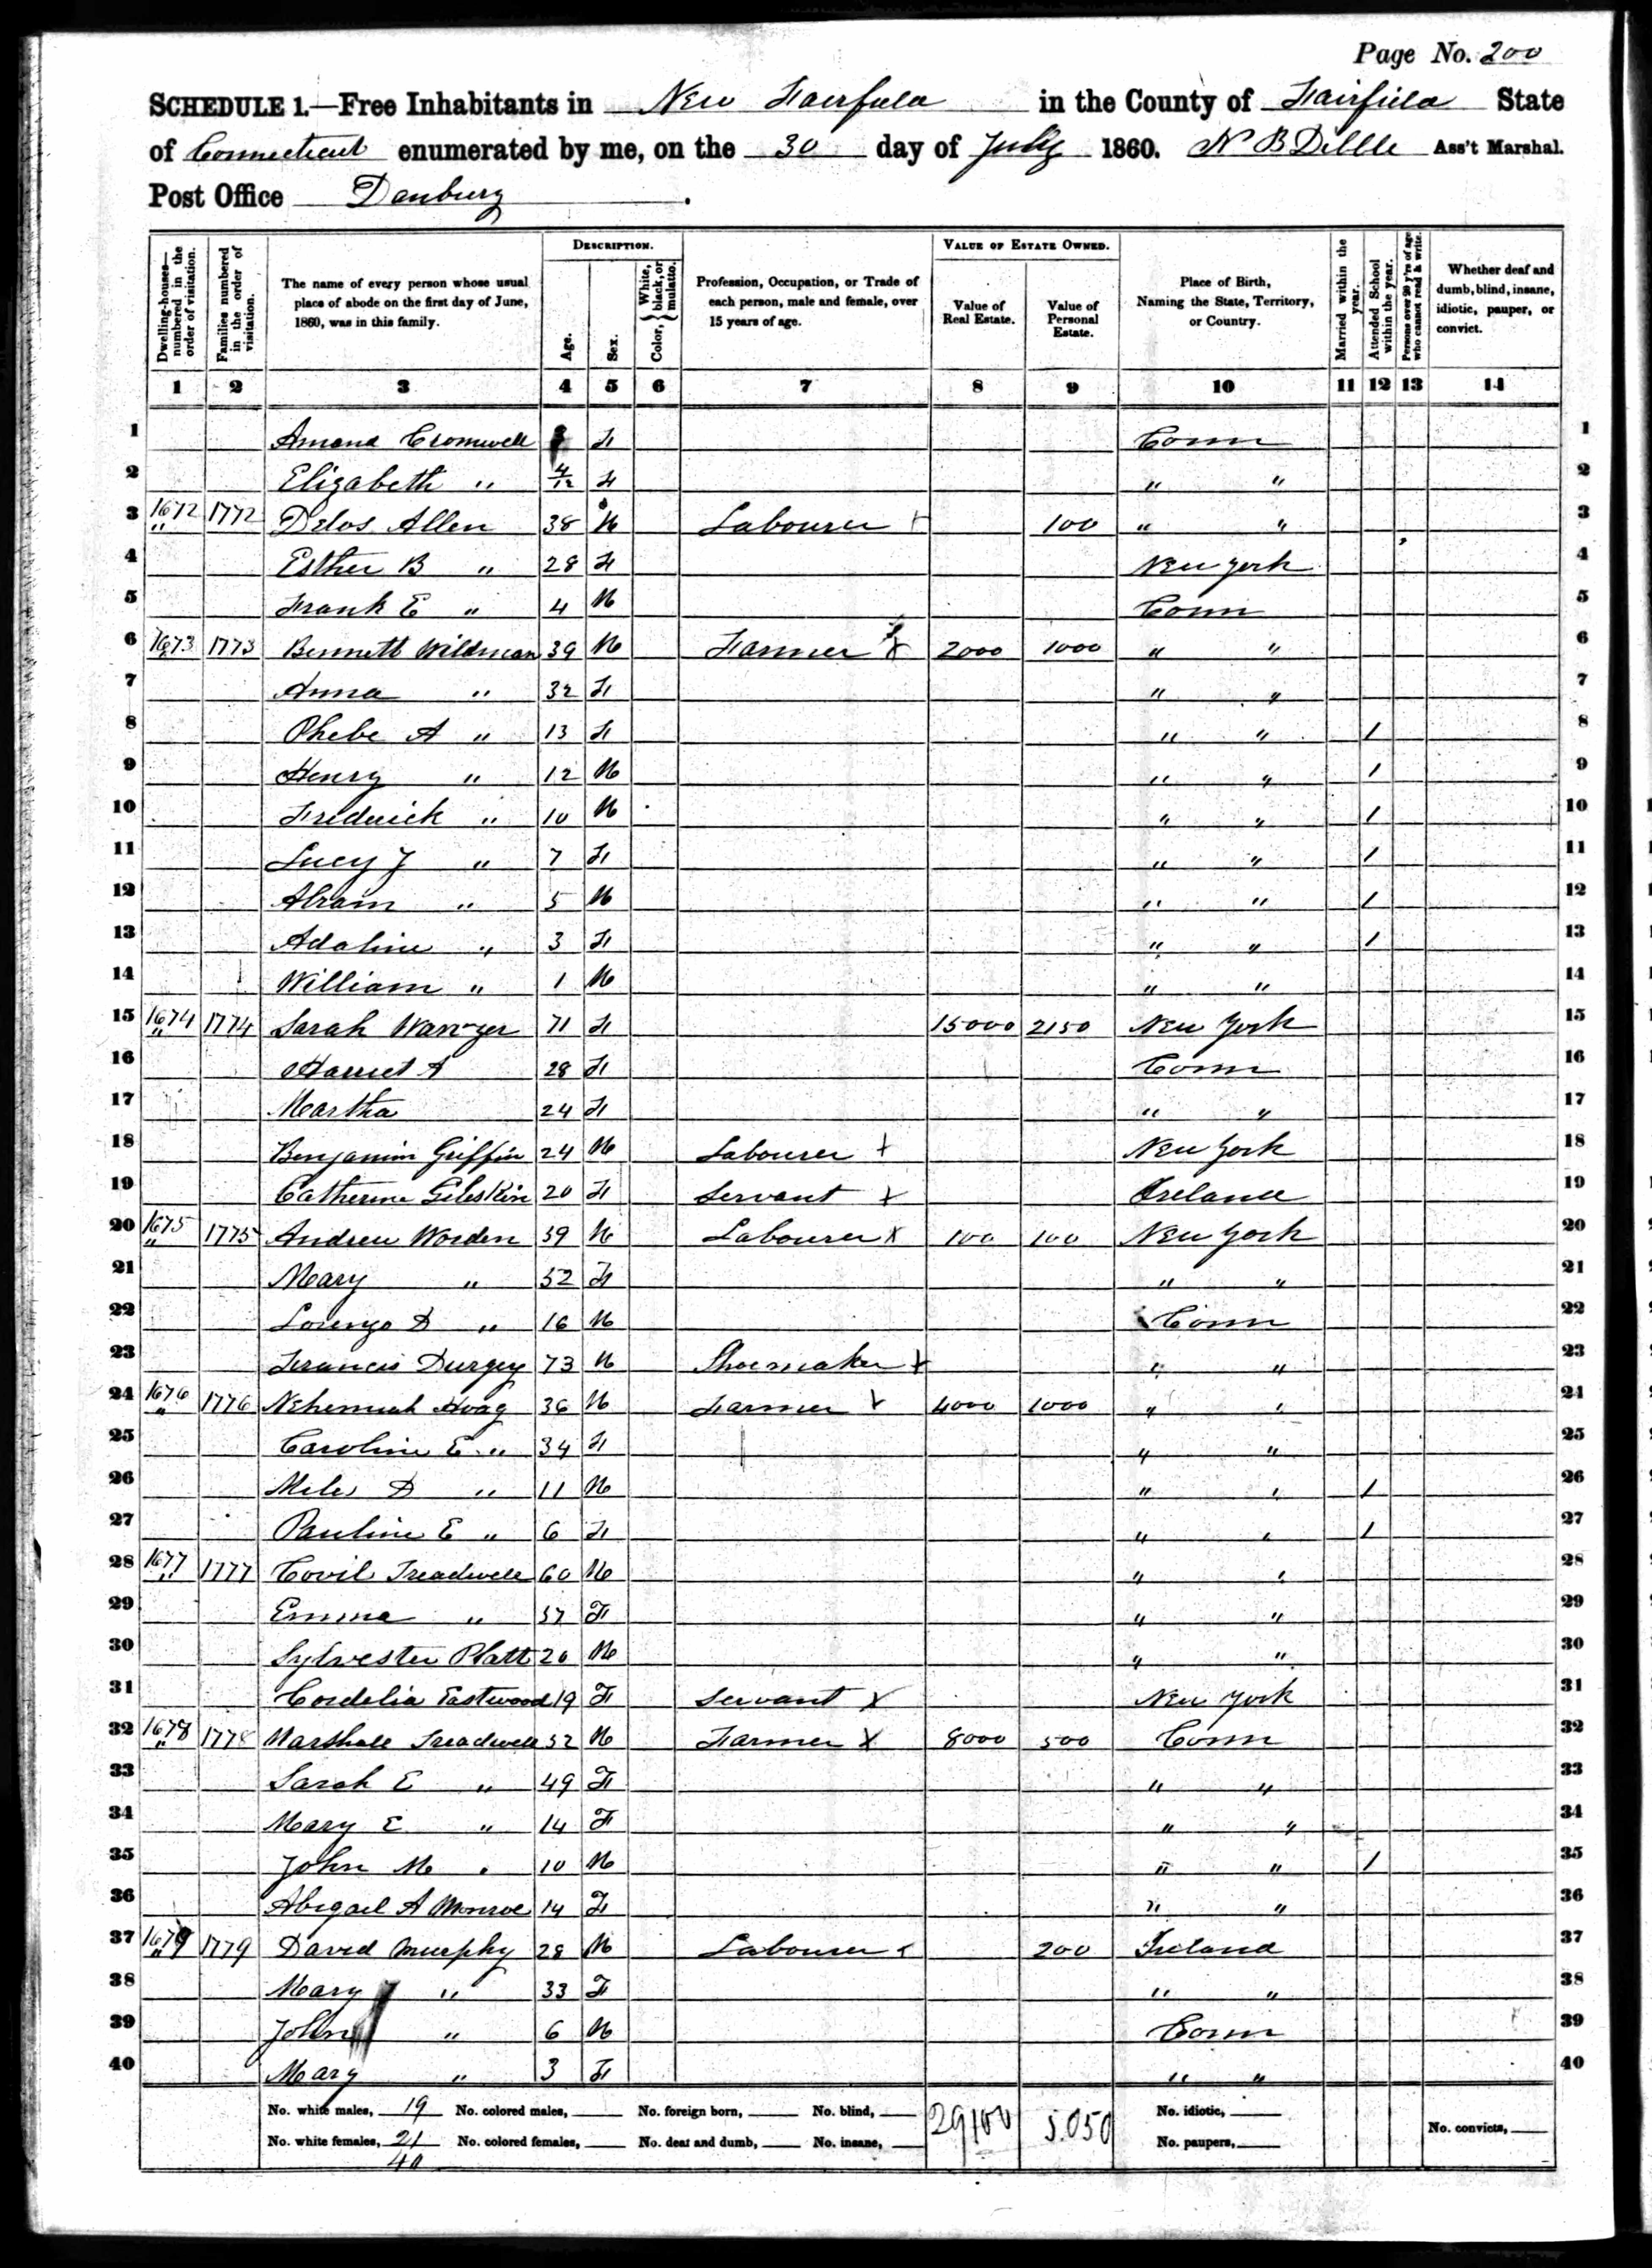 Page No. 200
SCHEDULE 1.—Free Inhabitants in New Fairfield in the County of Fairfield State
of Connecticut enumerated by me, on the 30 day of July 1860. N B Dibble Ass't Marshal.
Post Office Danbury.
DESCRIPTION. VALUE OF ESTATE OWNED.
Dwelling-houses—numbered in the order of visitation. Families numbered in the order of visitation. The name of every person whose usual place of abode on the first day of June, 1860, was in this family. Age. Sex. Color, White, black, or mulatto. Profession, Occupation, or Trade of each person, male and female, over 15 years of age. Value of Real Estate. Value of Personal Estate. Place of Birth, Naming the State, Territory, or Country. Married within the year. Attended School within the year. Persons over 20 y'rs of age who cannot read & write. Whether deaf and dumb, blind, insane, idiotic, pauper, or convict.
1 2 3 4 5 6 7 8 9 10 11 12 13 14
1 Amand Cromwell F Conn 1
2 Elizabeth " 4/12 F " " 2
3 1672 " 1772 Delos Allen 38 M Labourer 100 " " 3
4 Esther B " 28 F New York 4
5 Frank E " 4 M Conn 5
6 1673 1773 Bennett Wildman 39 M Farmer X 2000 1000 " " 6
7 Anna " 32 F " " 7
8 Phebe A " 13 F " " / 8
9 Henry " 12 M " " / 9
10 Frederick " 10 M " " / 10
11 Lucy J " 7 F " " / 11
12 Abram " 5 M " " / 12
13 Adaline " 3 F " " / 13
14 William " 1 M " " 14
15 1674 " 1774 Sarah Wanzer 71 F 15000 2150 New York 15
16 Harriet A 28 F Conn 16
17 Martha 24 F " " 17
18 Benjamin Griffin 24 M Labourer + New York 18
19 Catherine 20 F Servant + Ireland 19
20 1675 " 1775 Andrew Worden 59 M Labourer X 100 100 New York 20
21 Mary " 52 F " " 21
22 Lorenzo D " 16 M Conn 22
23 Francis Durgey 73 M Shoemaker + " " 23
24 1676 " 1776 Nehemiah Hoag 36 M Farmer + 4000 1000 " " 24
25 Caroline E " 34 F " " 25
26 Miles D " 11 M " " / 26
27 Pauline E " 6 F " " / 27
28 1677 " 1777 Covil Treadwell 60 M " " 28
29 Emma " 57 F " " 29
30 Sylvester Platt 20 M " " 30
31 Cordelia Eastwood 19 F Servant X New York 31
32 1678 " 1778 Marshall Treadwell 52 M Farmer X 8000 500 Conn 32
33 Sarah E " 49 F " " 33
34 Mary E " 14 F " " 34
35 John M " 10 M " " / 35
36 Abigail A Monroe 14 F " " 36
37 1679 " 1779 David Murphy 28 M Labourer 200 Ireland 37
38 Mary " 33 F " " 38
39 John " 6 M Conn 39
40 Mary " 3 F " " 40
No. white males, 19 No. colored males, No. foreign born, No. blind, 29100 5.050 No. idiotic,
No. white females, 21 No. colored females, No. deaf and dumb, No. insane, No. paupers, No. convicts,
40